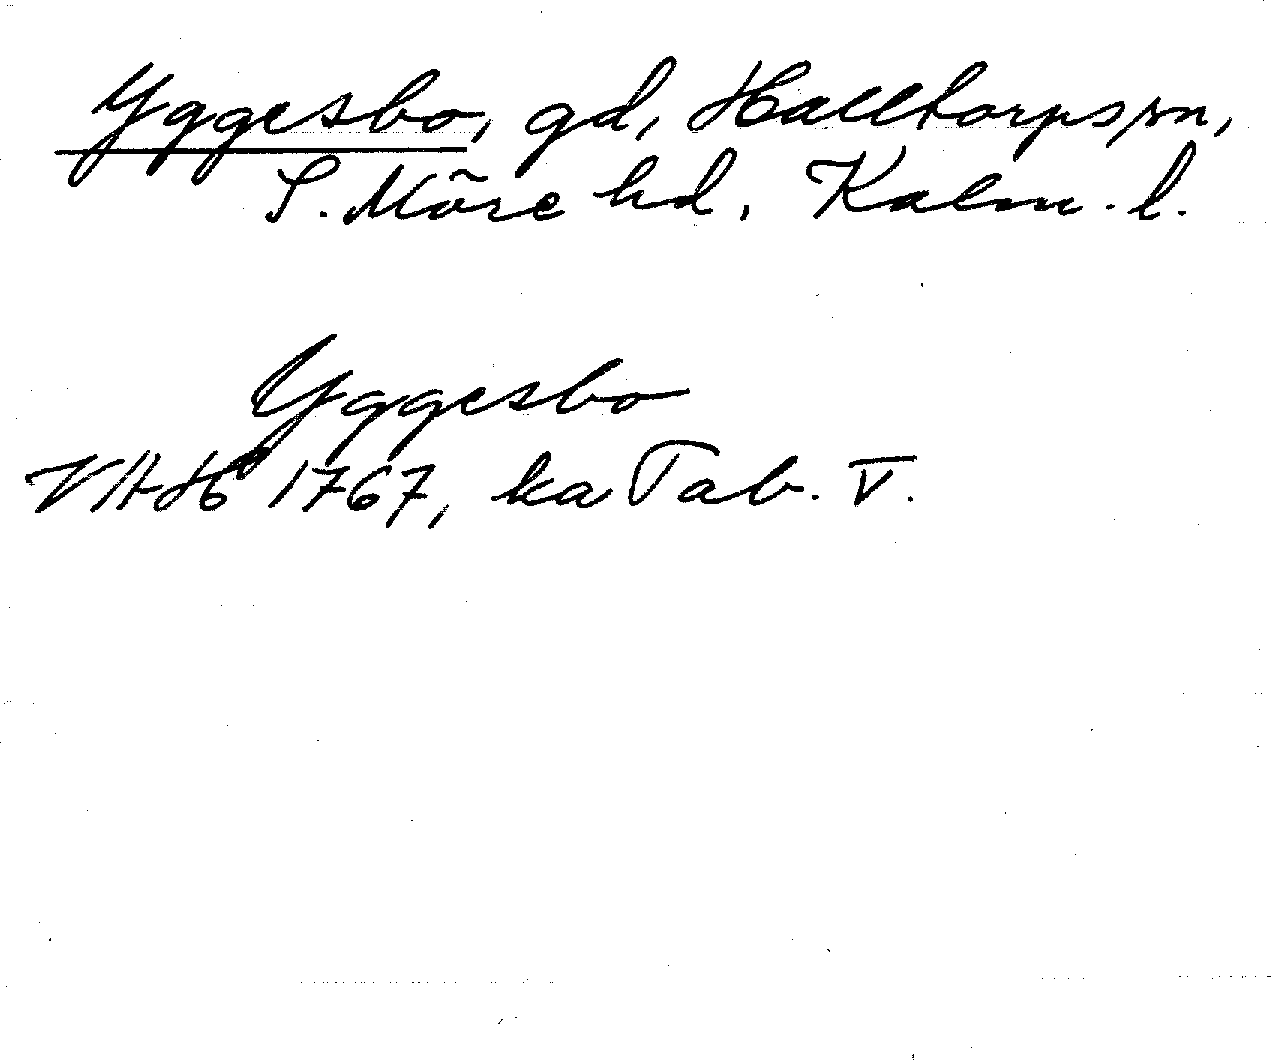 Yggesbo, gd, Halltorps sn,
S. Möre hd, Kalm. l.
Yggesbo
VHAH 1767, ka Tab. V.